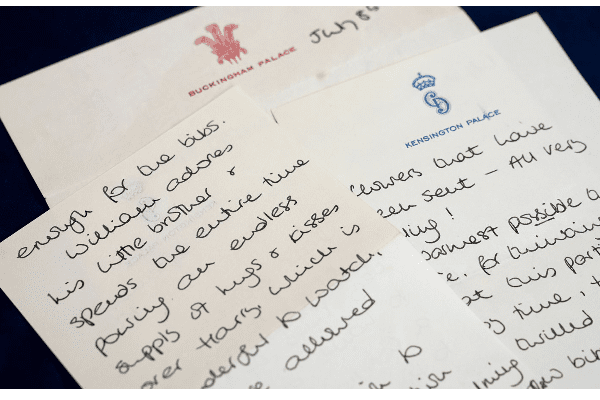 BUCKINGHAM PALACE
July 84
KENSINGTON PALACE
enough for the bibs.
William adores
his little brother &
spends the entire time
pouring an endless
supply of hugs & kisses
over Harry, which is
to watch,
allowed
to
flowers that have
sent - All very
!
possible
for thinking
at this
time,
thrilled